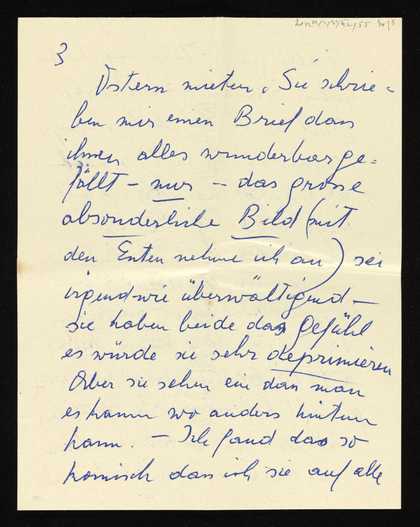 3
Ostern mieten. Sie schrie-
ben mir einen Brief dass
ihnen alles wunderbar ge-
fällt – nur – das grosse
absonderliche Bild (mit
den Enten nehme ich an) sei
irgendwie überwältigend –
sie haben beide das Gefühl
es würde sie sehr deprimieren
Aber sie sehen ein dass man
es kaum wo anders hintun
kann. – Ich fand das so
komisch dass ich sie auf alle